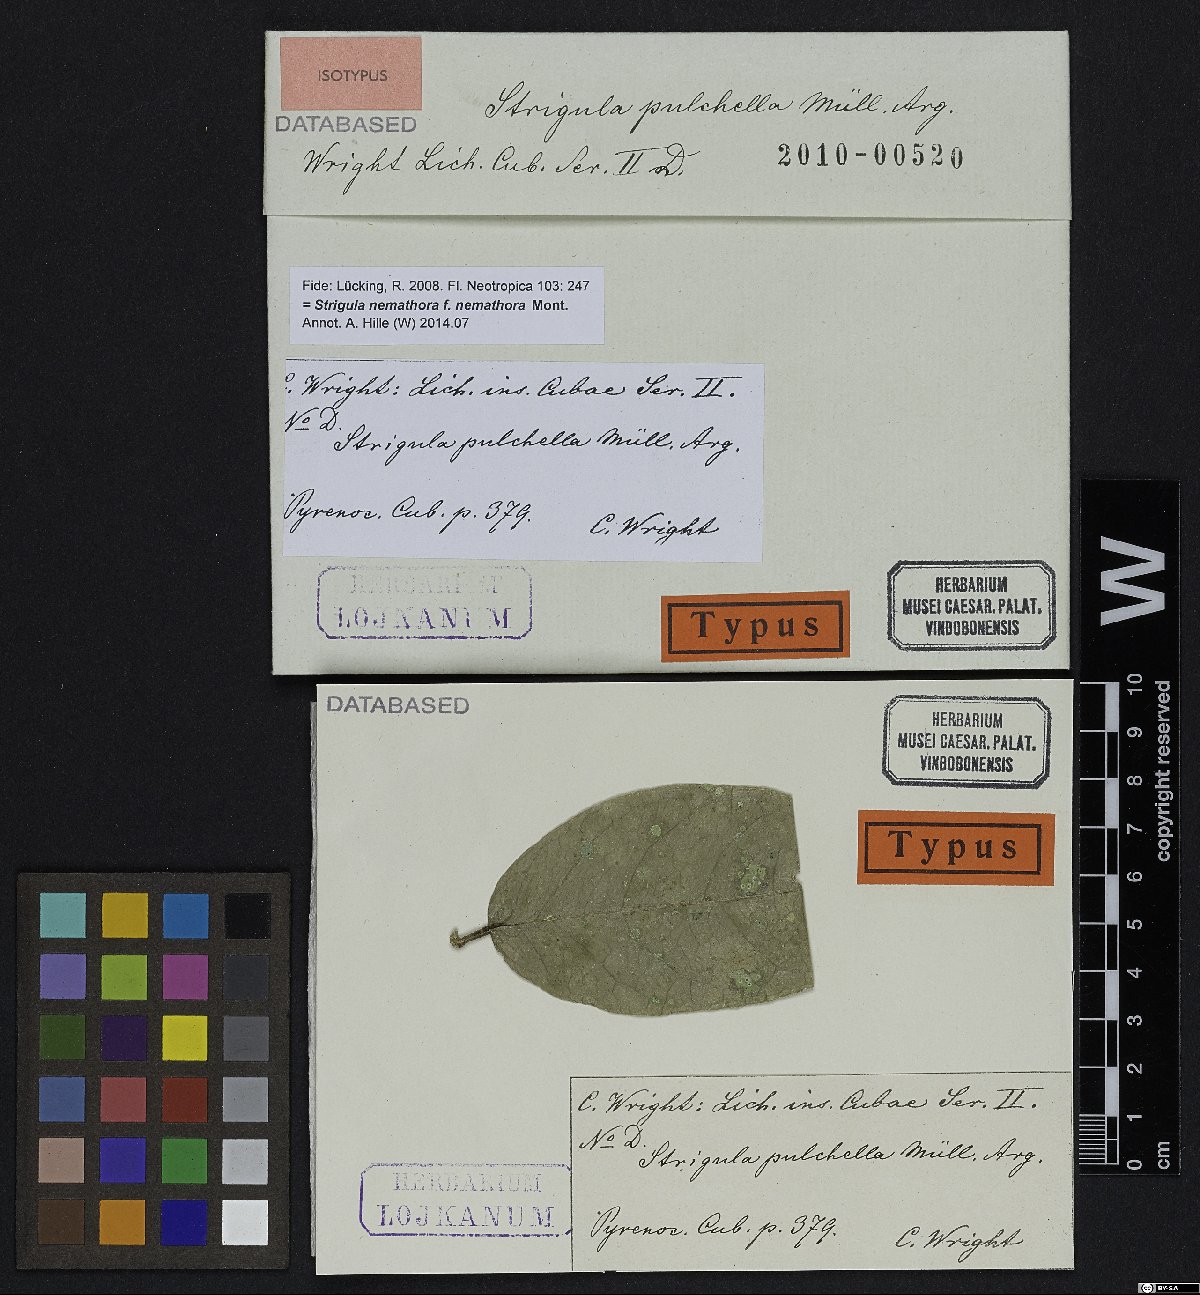 ISOTYPUS
DATABASED
Strigula pulchella Müll. Arg.
Wright Lich. Cub. Ser. II D.
2010-00520
Fide: Lücking, R. 2008. Fl. Neotropica 103: 247
= Strigula nemathora f. nemathora Mont.
Annot. A. Hille (W) 2014.07
C. Wright: Lich. ins. Cubae Ser. II.
No D.
Strigula pulchella Müll. Arg.
Pyrenoc. Cub. p. 379.
C. Wright
HERBARIUM
LOJKANUM
Typus
HERBARIUM
MUSEI CAESAR. PALAT.
VINDOBONENSIS
DATABASED
HERBARIUM
MUSEI CAESAR. PALAT.
VINDOBONENSIS
Typus
C. Wright: Lich. ins. Cubae Ser. II.
No D.
Strigula pulchella Müll. Arg.
Pyrenoc. Cub. p. 379.
C. Wright
HERBARIUM
LOJKANUM
W
10
9
8
7
6
5
4
3
2
1
0
cm
copyright reserved
cc BY-SA